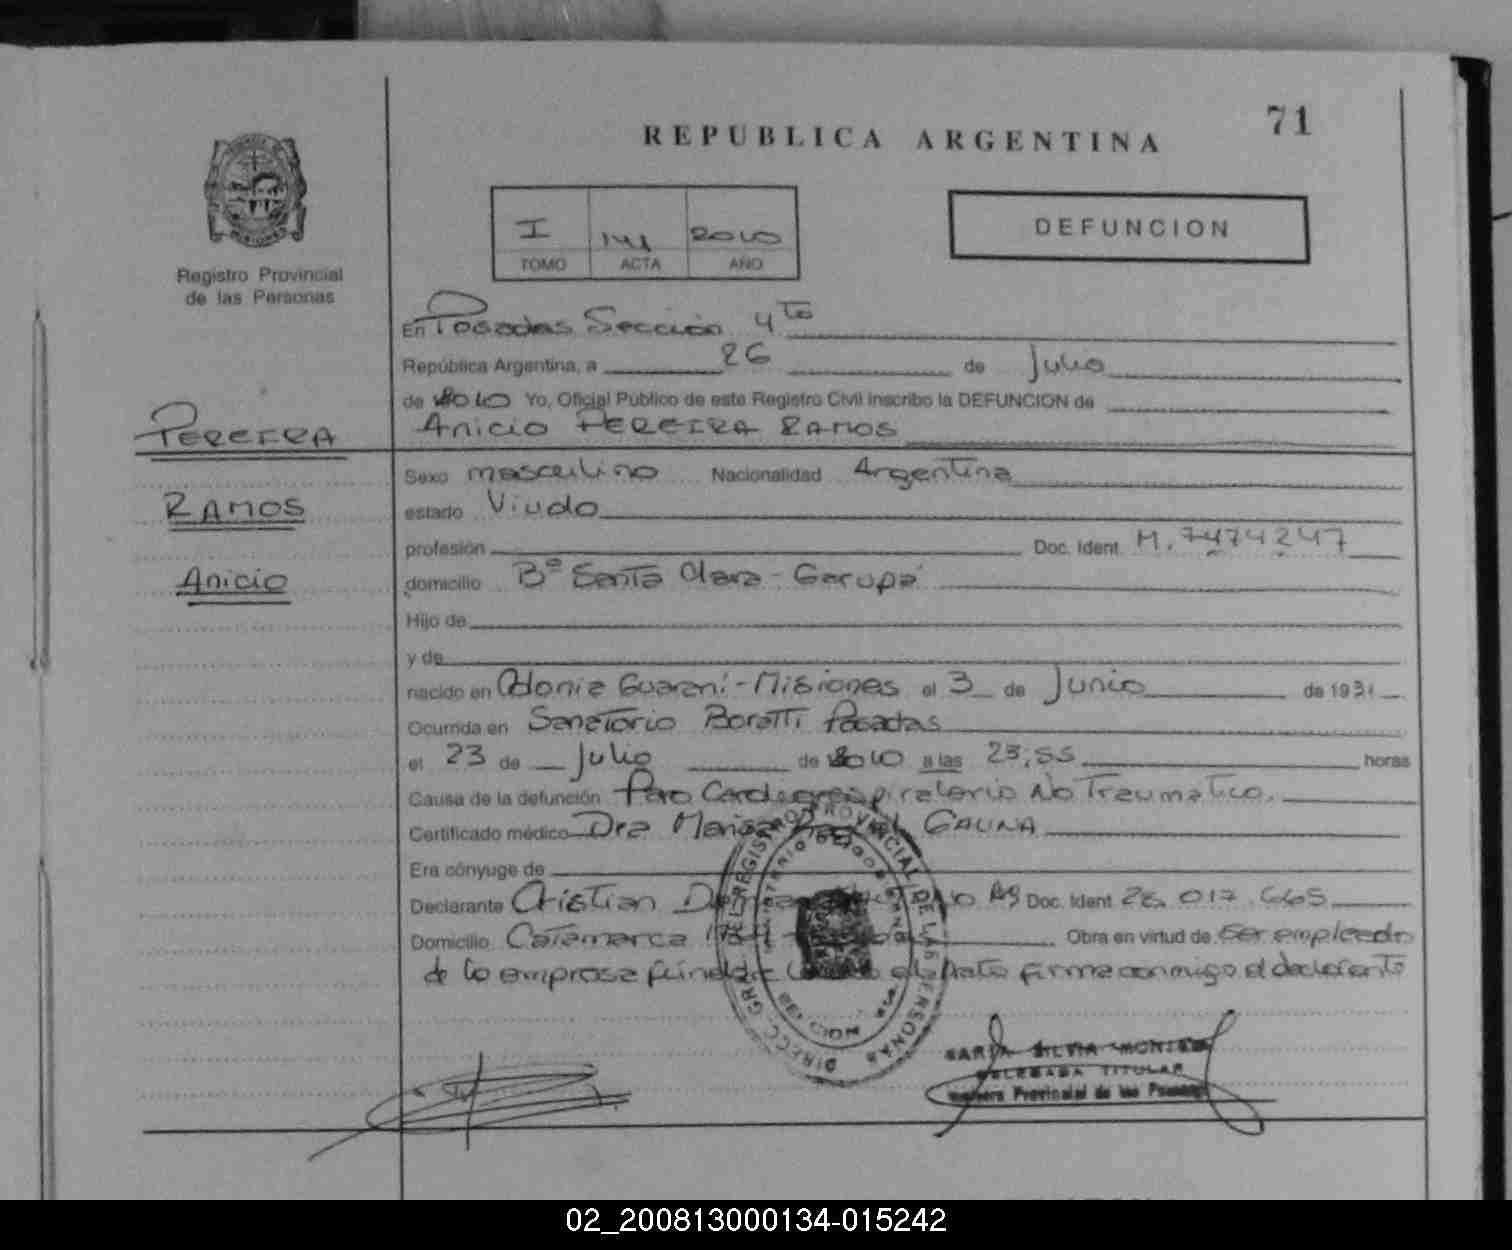 71
REPUBLICA ARGENTINA
MISIONES
Registro Provincial
de las Personas
I 141 2010
TOMO ACTA AÑO
DEFUNCION
En Posadas Sección 4ta
República Argentina, a 26 de Julio
de 2010 Yo, Oficial Público de este Registro Civil inscribo la DEFUNCION de
PEREIRA
Anicio PEREIRA RAMOS
RAMOS
Anicio
Sexo masculino Nacionalidad Argentina
estado Viudo
profesión Doc. Ident. M. 7474247
domicilio Bº Santa Clara - Garupá
Hijo de
y de
nacido en Colonia Guaraní - Misiones el 3 de Junio de 1931
Ocurrida en Sanatorio Boratti Posadas
el 23 de Julio de 2010 a las 23:55 horas
Causa de la defunción Paro Cardiorespiratorio No Traumatico.
Certificado médico Dra Marisa Raquel GAUNA
Era cónyuge de
Declarante Cristian Doc. Ident. 28.017.665
Domicilio Catamarca Obra en virtud de Ser empleado
de la empresa fúnebre el Acta firma conmigo el declarante
DIRECC. GRAL. DEL REGISTRO PROVINCIAL DE LAS PERSONAS
MINISTERIO DE GOBIERNO
SILVIA MONTES
DELEGADA TITULAR
Provincial de las Personas
02_200813000134-015242